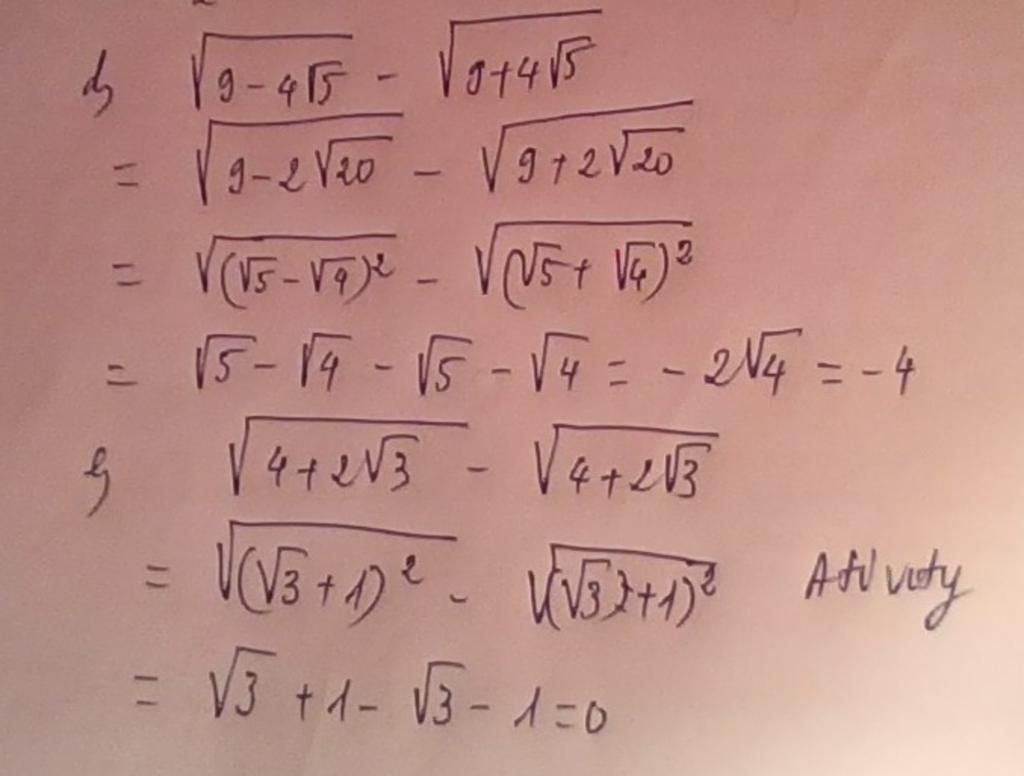 d) √(9-4√5) - √(9+4√5)
= √(9-2√20) - √(9+2√20)
= √((√5-√4)²) - √((√5+√4)²)
= √5 - √4 - √5 - √4 = -2√4 = -4
√(4+2√3) - √(4+2√3)
= √((√3+1)²) - √((√3+1)²)
= √3 + 1 - √3 - 1 = 0